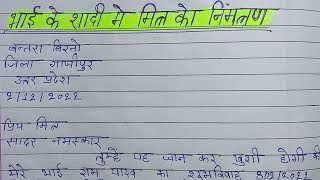 भाई के शादी मे मित्र को निमंत्रण
बन्तरा बिरनो
जिला गाजीपुर
उत्तर प्रदेश
2/12/2022
प्रिय मित्र
सादर नमस्कार
तुम्हें यह जान कर खुशी होगी की
मेरे भाई राम यादव का